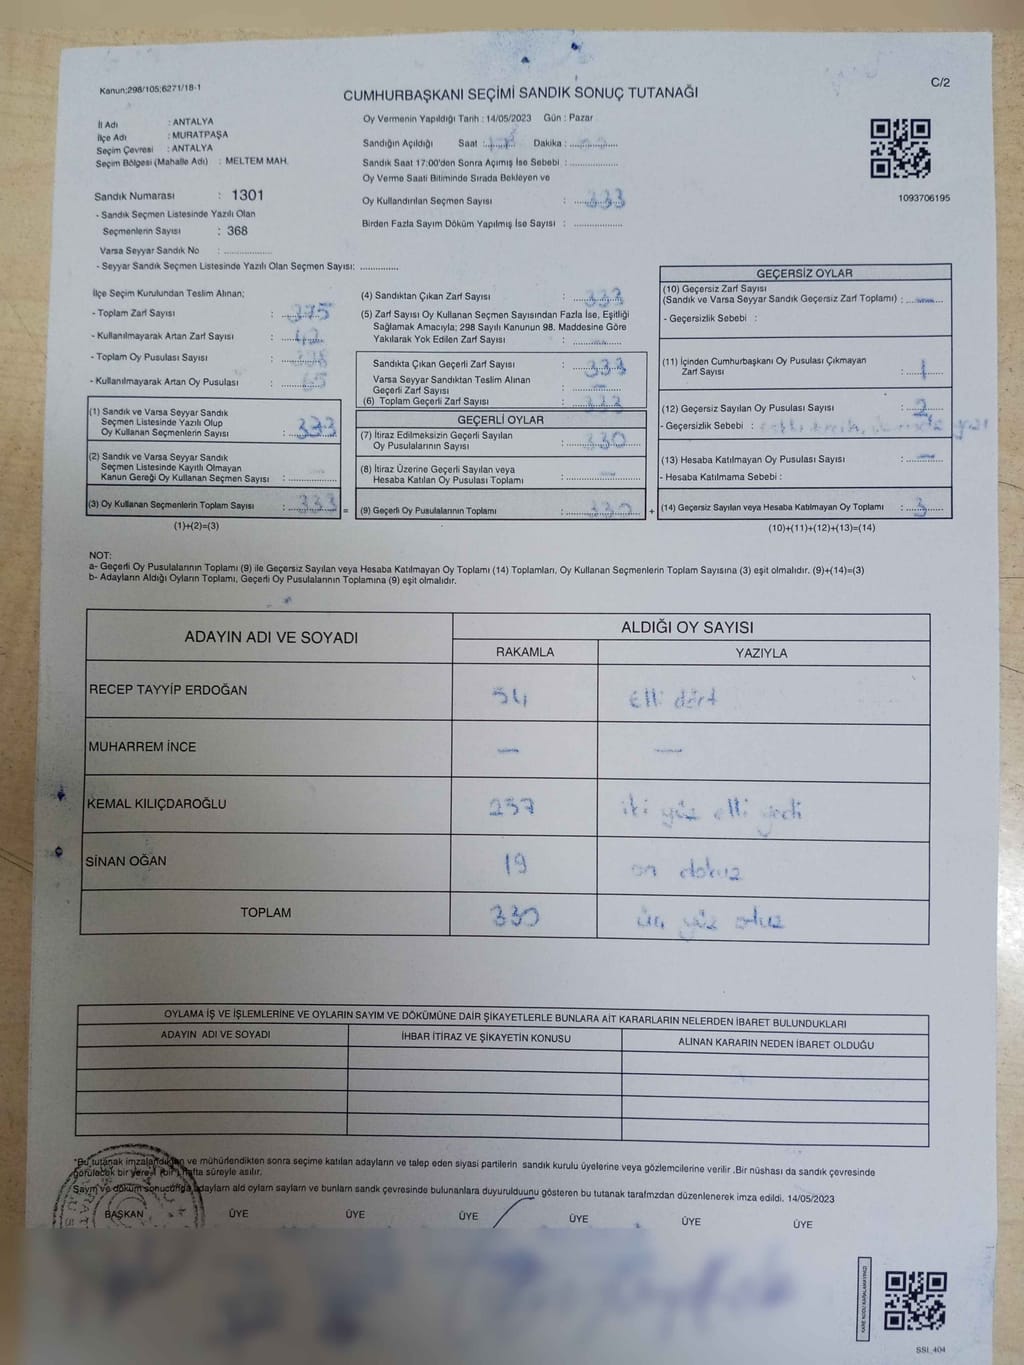 Kanun:298/105;6271/18-1
C/2
CUMHURBAŞKANI SEÇİMİ SANDIK SONUÇ TUTANAĞI
İl Adı : ANTALYA
İlçe Adı : MURATPAŞA
Seçim Çevresi : ANTALYA
Seçim Bölgesi (Mahalle Adı) : MELTEM MAH.
Sandık Numarası : 1301
- Sandık Seçmen Listesinde Yazılı Olan
Seçmenlerin Sayısı : 368
Varsa Seyyar Sandık No : ..............
- Seyyar Sandık Seçmen Listesinde Yazılı Olan Seçmen Sayısı: ............
Oy Vermenin Yapıldığı Tarih : 14/05/2023 Gün : Pazar
Sandığın Açıldığı Saat : Dakika :
Sandık Saat 17:00'den Sonra Açımış İse Sebebi : ................
Oy Verme Saati Bitiminde Sırada Bekleyen ve
Oy Kullandırılan Seçmen Sayısı : 333
Birden Fazla Sayım Döküm Yapılmış İse Sayısı : ................
1093706195
İlçe Seçim Kurulundan Teslim Alınan;
- Toplam Zarf Sayısı : 375
- Kullanılmayarak Artan Zarf Sayısı : 42
- Toplam Oy Pusulası Sayısı :
- Kullanılmayarak Artan Oy Pusulası :
(1) Sandık ve Varsa Seyyar Sandık
Seçmen Listesinde Yazılı Olup
Oy Kullanan Seçmenlerin Sayısı : 333
(2) Sandık ve Varsa Seyyar Sandık
Seçmen Listesinde Kayıtlı Olmayan
Kanun Gereği Oy Kullanan Seçmen Sayısı : —
(3) Oy Kullanan Seçmenlerin Toplam Sayısı : 333 =
(1)+(2)=(3)
(4) Sandıktan Çıkan Zarf Sayısı : 333
(5) Zarf Sayısı Oy Kullanan Seçmen Sayısından Fazla İse, Eşitliği
Sağlamak Amacıyla; 298 Sayılı Kanunun 98. Maddesine Göre
Yakılarak Yok Edilen Zarf Sayısı : —
Sandıkta Çıkan Geçerli Zarf Sayısı : 333
Varsa Seyyar Sandıktan Teslim Alınan
Geçerli Zarf Sayısı : —
(6) Toplam Geçerli Zarf Sayısı : 333
GEÇERLİ OYLAR
(7) İtiraz Edilmeksizin Geçerli Sayılan
Oy Pusulalarının Sayısı : 330
(8) İtiraz Üzerine Geçerli Sayılan veya
Hesaba Katılan Oy Pusulası Toplamı : —
(9) Geçerli Oy Pusulalarının Toplamı : 330 +
GEÇERSİZ OYLAR
(10) Geçersiz Zarf Sayısı
(Sandık ve Varsa Seyyar Sandık Geçersiz Zarf Toplamı) : —
- Geçersizlik Sebebi :
(11) İçinden Cumhurbaşkanı Oy Pusulası Çıkmayan
Zarf Sayısı : 1
(12) Geçersiz Sayılan Oy Pusulası Sayısı : 2
- Geçersizlik Sebebi :
(13) Hesaba Katılmayan Oy Pusulası Sayısı : —
- Hesaba Katılmama Sebebi :
(14) Geçersiz Sayılan veya Hesaba Katılmayan Oy Toplamı : 3
(10)+(11)+(12)+(13)=(14)
NOT:
a- Geçerli Oy Pusulalarının Toplamı (9) ile Geçersiz Sayılan veya Hesaba Katılmayan Oy Toplamı (14) Toplamları, Oy Kullanan Seçmenlerin Toplam Sayısına (3) eşit olmalıdır. (9)+(14)=(3)
b- Adayların Aldığı Oyların Toplamı, Geçerli Oy Pusulalarının Toplamına (9) eşit olmalıdır.
ADAYIN ADI VE SOYADI ALDIĞI OY SAYISI
RAKAMLA YAZIYLA
RECEP TAYYİP ERDOĞAN 54 Elli dört
MUHARREM İNCE — —
KEMAL KILIÇDAROĞLU 257 iki yüz elli yedi
SİNAN OĞAN 19 on dokuz
TOPLAM 330 üç yüz otuz
OYLAMA İŞ VE İŞLEMLERİNE VE OYLARIN SAYIM VE DÖKÜMÜNE DAİR ŞİKAYETLERLE BUNLARA AİT KARARLARIN NELERDEN İBARET BULUNDUKLARI
ADAYIN ADI VE SOYADI İHBAR İTİRAZ VE ŞİKAYETİN KONUSU ALINAN KARARIN NEDEN İBARET OLDUĞU
*Bu tutanak imzalandıktan ve mühürlendikten sonra seçime katılan adayların ve talep eden siyasi partilerin sandık kurulu üyelerine veya gözlemcilerine verilir .Bir nüshası da sandık çevresinde
görülecek bir yere 1 (bir) hafta süreyle asılır.
Sayım ve döküm sonucunda adayların ald oyların sayların ve bunların sandk çevresinde bulunanlara duyurulduunu gösteren bu tutanak tarafmzdan düzenlenerek imza edildi. 14/05/2023
BAŞKAN ÜYE ÜYE ÜYE ÜYE ÜYE ÜYE
SSI_404